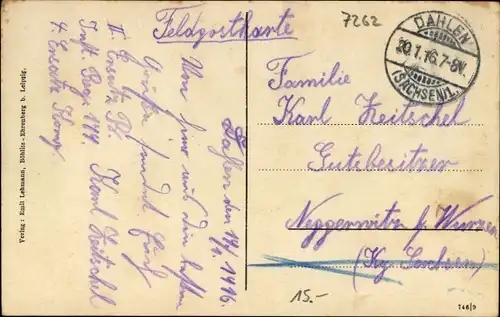 Feldpostkarte
7262
DAHLEN
20.1.16.7-8V.
(SACHSEN)1.
Familie
Karl Zeitschel
Gutsbesitzer
Neggernitz b/ Wurzen
(Kg. Sachsen)
Dahlen den 19/1. 1916.
Von hier aus die besten
Grüße sendet Euch
Karl Zeitschel
II. Ersatz Bt.
Inft. Reg. 179
4. Ersatz Komp.
Verlag: Emil Lehmann, Böhlitz-Ehrenberg b. Leipzig.
15.-
746/9